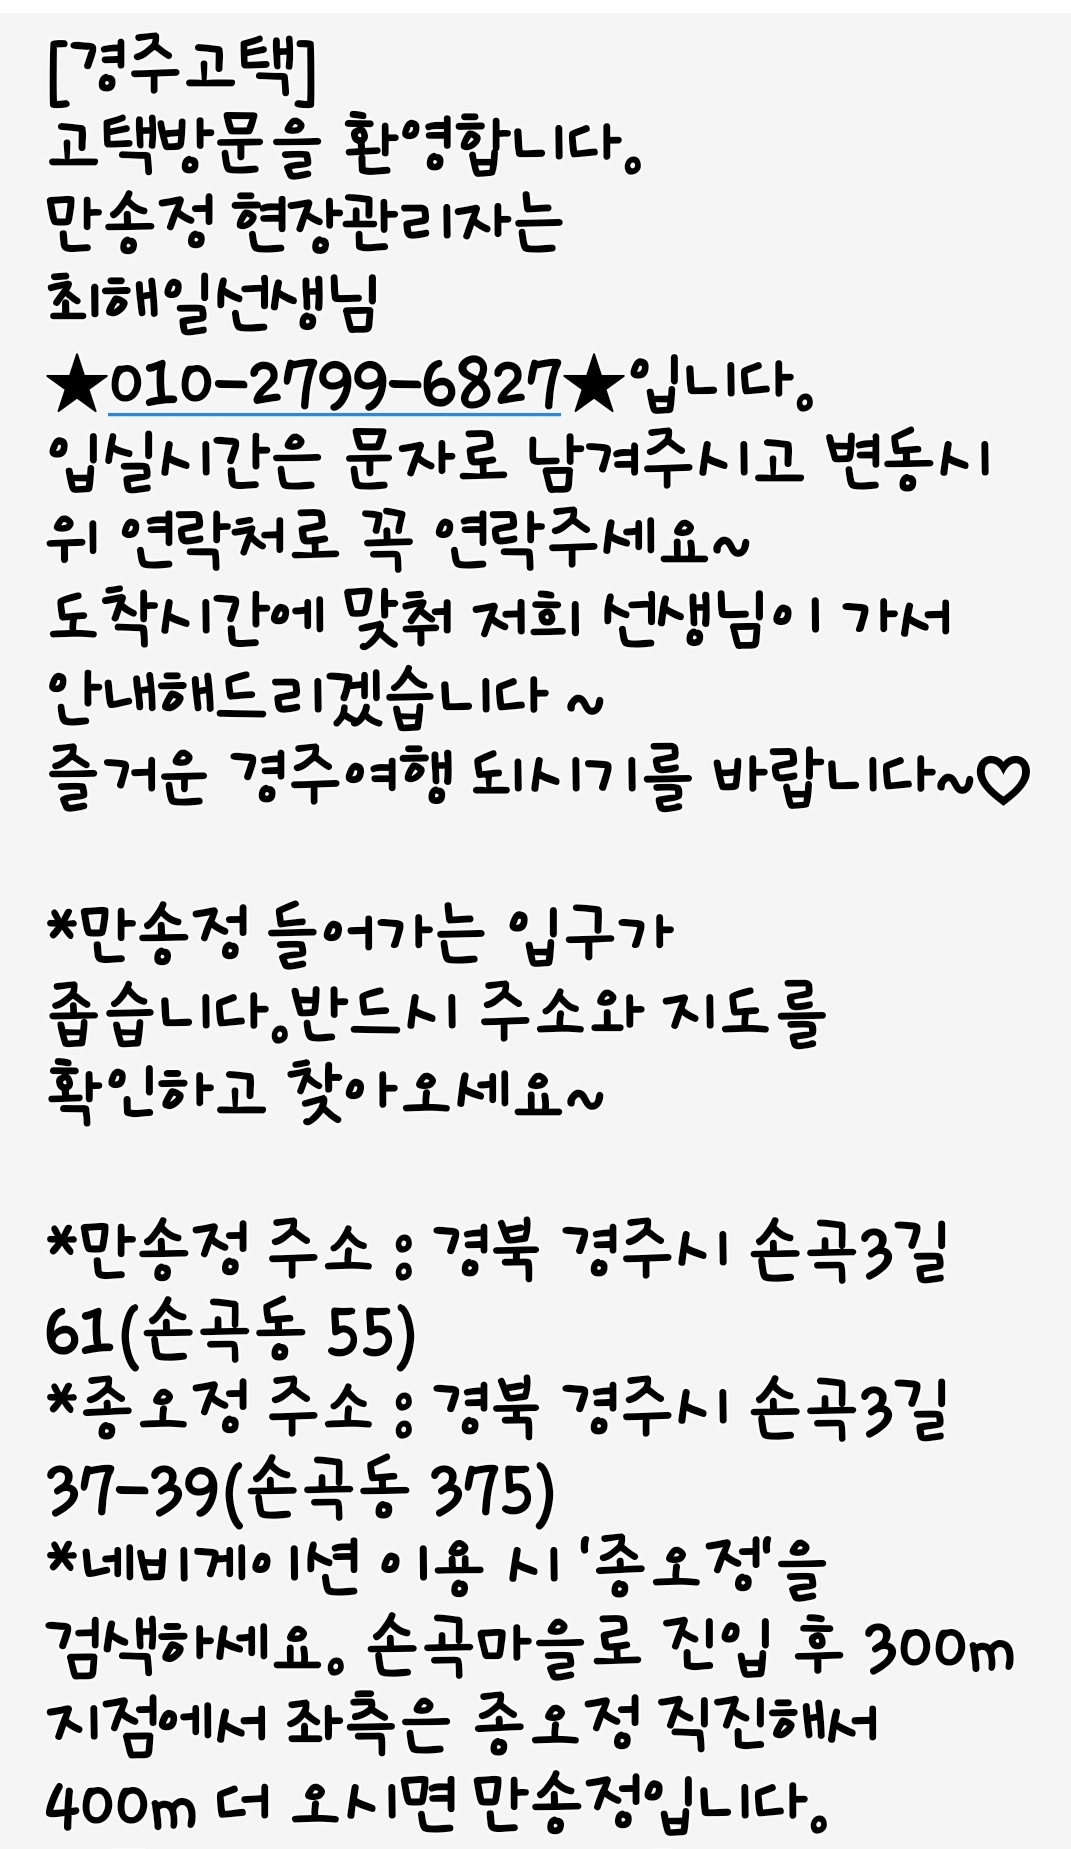 [경주고택]
고택방문을 환영합니다.
만송정 현장관리자는
최해일선생님
★010-2799-6827★입니다.
입실시간은 문자로 남겨주시고 변동시
위 연락처로 꼭 연락주세요~
도착시간에 맞춰 저희 선생님이 가서
안내해드리겠습니다 ~
즐거운 경주여행 되시기를 바랍니다~♡
*만송정 들어가는 입구가
좁습니다.반드시 주소와 지도를
확인하고 찾아오세요~
*만송정 주소 : 경북 경주시 손곡3길
61(손곡동 55)
*종오정 주소 : 경북 경주시 손곡3길
37-39(손곡동 375)
*네비게이션 이용 시 '종오정'을
검색하세요. 손곡마을로 진입 후 300m
지점에서 좌측은 종오정 직진해서
400m 더 오시면 만송정입니다.